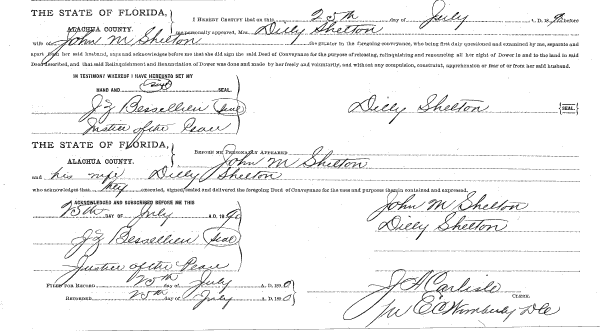 THE STATE OF FLORIDA,
ALACHUA COUNTY.
I HEREBY CERTIFY that on this 25th day of July A. D. 1890 before
me personally appeared, Mrs. Dilly Shelton
John M Shelton the grantor in the foregoing conveyance, who being first duly questioned and examined by me, separate and
apart from her said husband, and acknowledges before me that she did sign the said Deed of Conveyance for the purpose of releasing, relinquishing and renouncing all her right of Dower in and to the land in said
Deed described, and that said Relinquishment and Renunciation of Dower was done and made by her freely and voluntarily, and without any compulsion, constraint, apprehension or fear of or from her said husband.
IN TESTIMONY WHEREOF I HAVE HEREUNTO SET MY
HAND AND (sgd) SEAL.
J Z Bessellieu (seal) Dilly Shelton {SEAL}
Justice of the Peace
THE STATE OF FLORIDA,
ALACHUA COUNTY.
BEFORE ME PERSONALLY APPEARED John M Shelton
and his wife Dilly Shelton
who acknowledges that they executed, signed, sealed and delivered the foregoing Deed of Conveyance for the uses and purposes therein contained and expressed.
ACKNOWLEDGED AND SUBSCRIBED BEFORE ME THIS
25th DAY OF July A. D. 1890
J Z Bessellieu (seal)
Justice of the Peace
John M Shelton
Dilly Shelton
FILED FOR RECORD 25th day of July A. D. 1890
RECORDED 25th day of July A. D. 1890
J A Carlisle
CLERK.
pr E C Wimberly D C